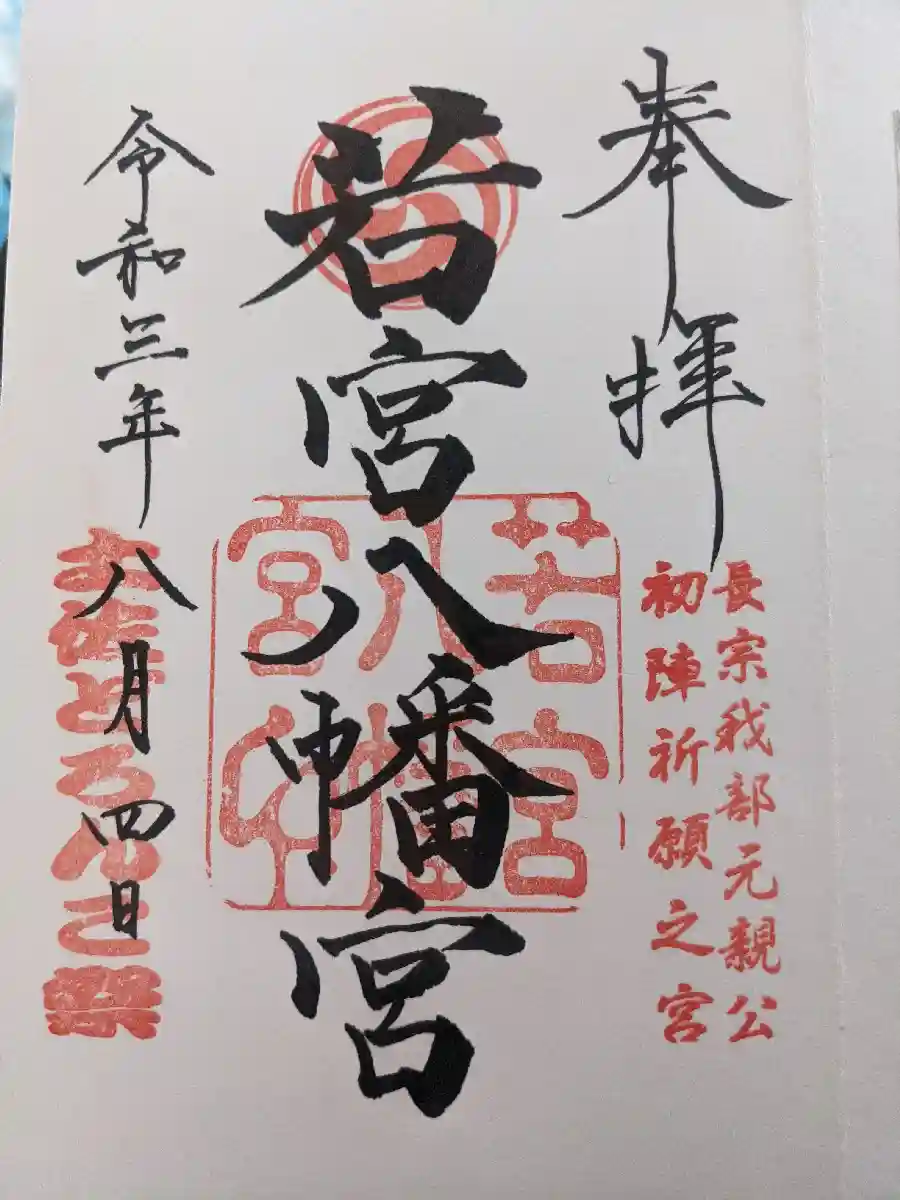 奉拝
長宗我部元親公
初陣祈願之宮
若宮八幡宮
若宮
八幡
宮印
令和三年八月四日
土佐どろんこ祭